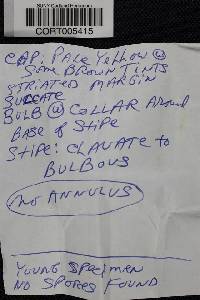 SUNY Cortland Herbarium
CORT005415
CAP: Pale Yellow w/
Some Brown Tints
STRIATED MARGIN
SULCATE
BULB w/ COLLAR Around
Base of Stipe
Stipe: CLAVATE to
BULBOUS
No ANNULUS
YOUNG SPECIMEN
NO SPORES FOUND